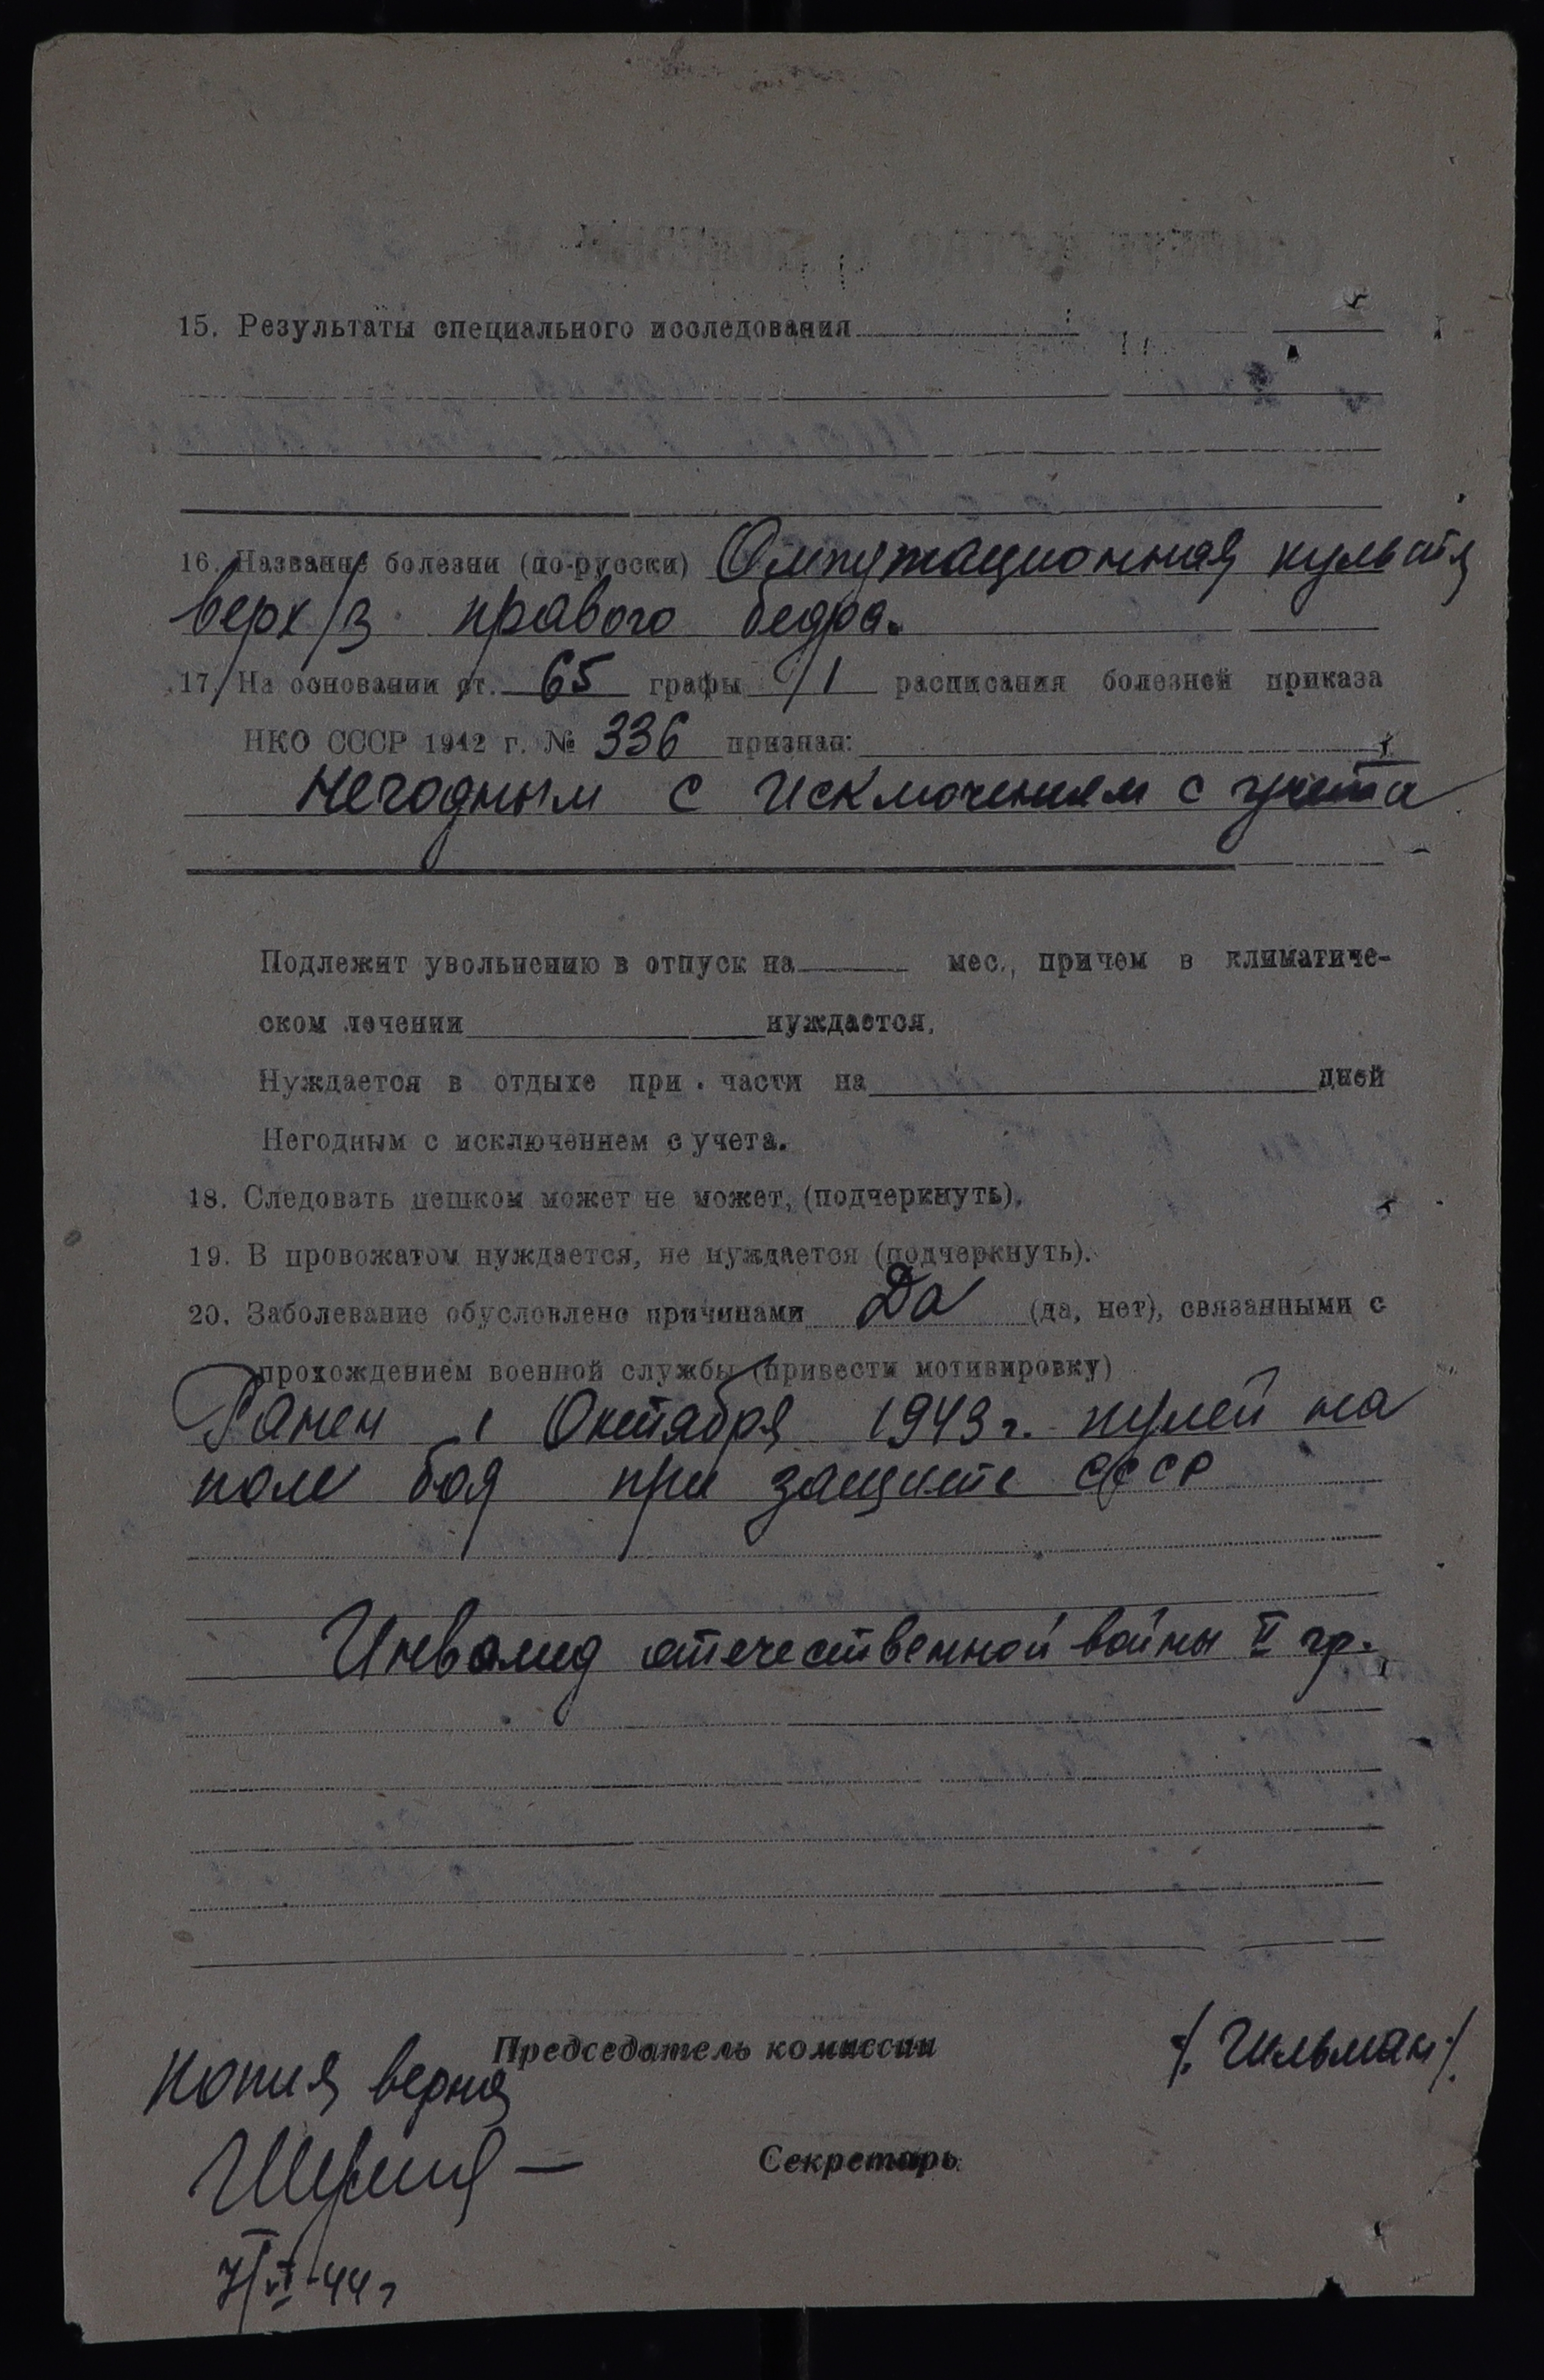 15. Результаты специального исследования
16. Название болезни (по-русски) Ампутационная культя
верх/з правого бедра.
17. На основании ст. 65 графы 1 расписания болезней приказа
НКО СССР 1942 г. № 336 признан:
негодным с исключением с учета
Подлежит увольнению в отпуск на мес., причем в климатиче-
ском лечении нуждается.
Нуждается в отдыхе при части на дней
Негодным с исключением с учета.
18. Следовать пешком может не может, (подчеркнуть).
19. В провожатом нуждается, не нуждается (подчеркнуть).
20. Заболевание обусловлено причинами Да (да, нет), связанными с
прохождением военной службы (привести мотивировку)
Ранен 1 Октября 1943 г. пулей на
поле боя при защите СССР
Инвалид отечественной войны II гр.
Председатель комиссии /. Гильман /.
Копия верна
Секретарь